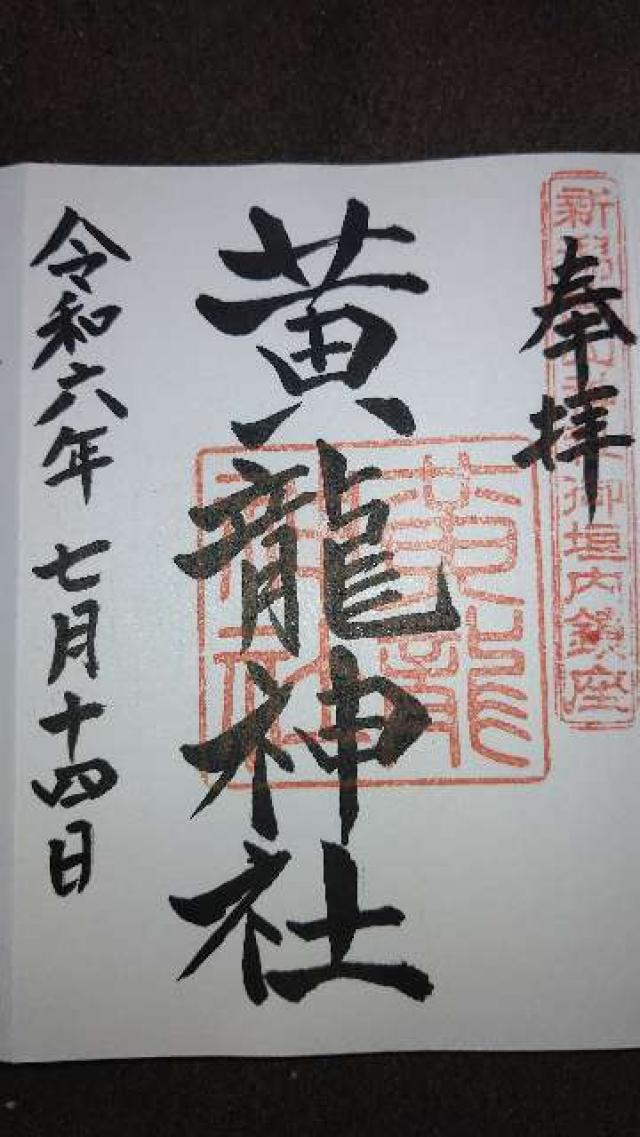 奉拝
新潟
御垣内鎮座
黄龍神社
黄龍神社
令和六年 七月十四日